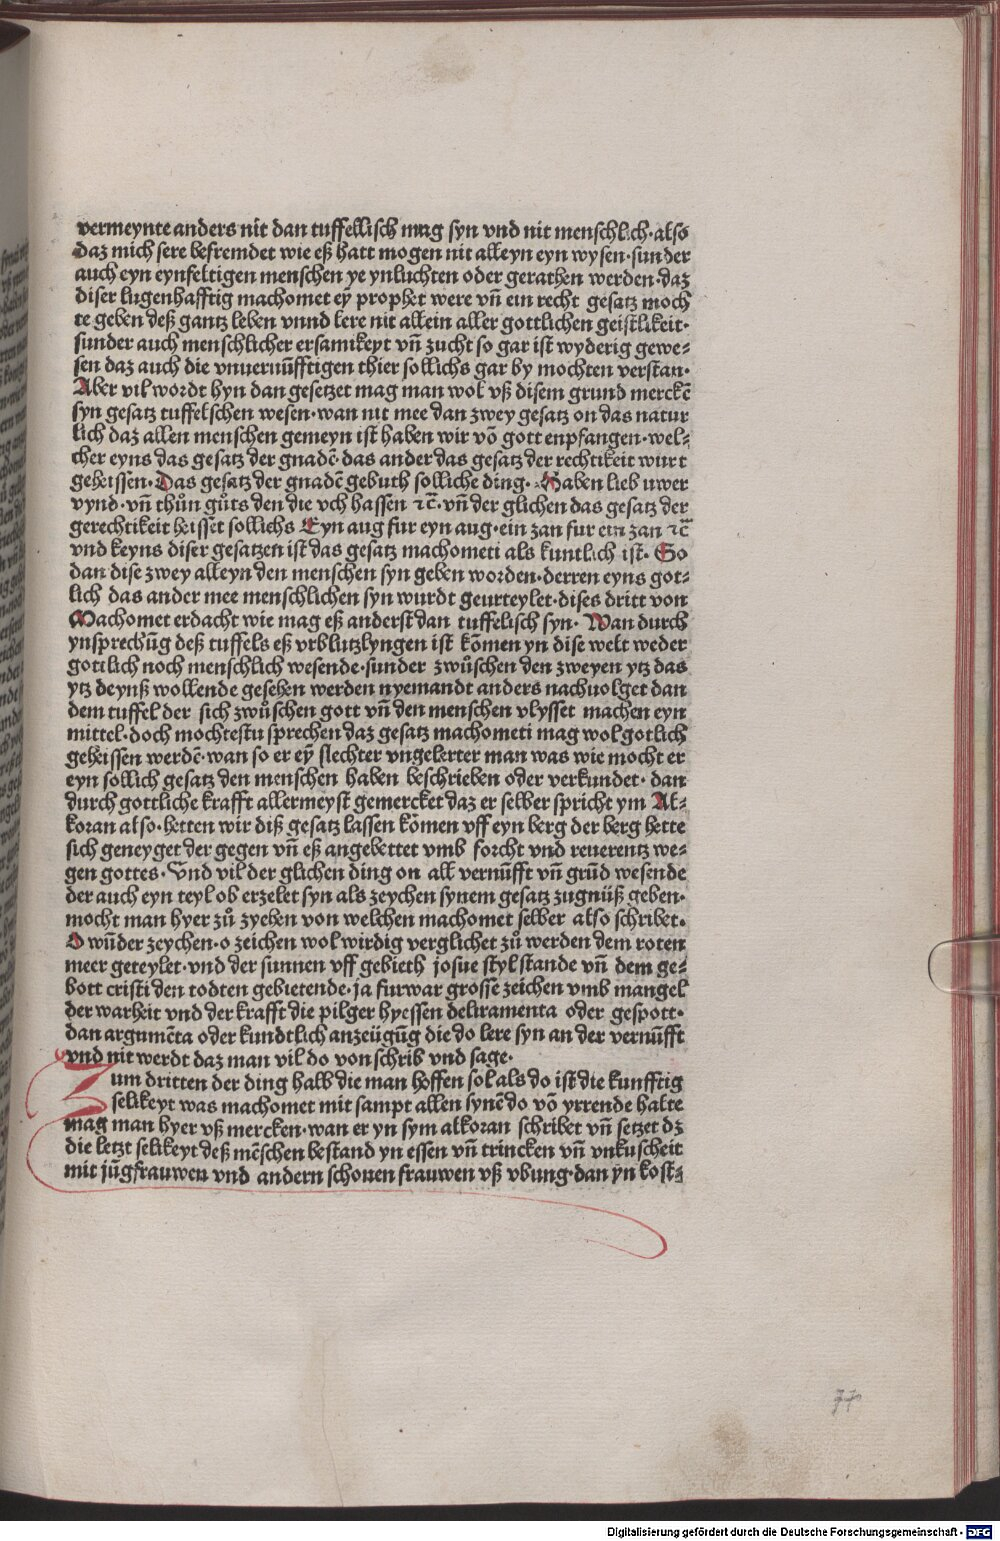 vermeynte anders nit dan tuffellisch mag syn vnd nit menschlich· also
daz mich sere befremdet wie eß hatt mogen nit alleyn eyn wysen· sunder
auch eyn eynfeltigen menschen ye ynluchten oder gerathen werden· daz
diser lugenhafftig machomet eyn̄ prophet were vn̄ ein recht gesatz moch
te geben deß gantz leben vnnd lere nit allein aller gottlichen geistlikeit·
sunder auch menschlicher ersamikeyt vn̄ zucht so gar ist wyderig gewe⸗
sen daz auch die vnuernu̅fftigen thier sollichs gar by mochten verstan·
Aber vil wordt hyn dan gesetzet mag man wol vß disem grund merckē
syn gesatz tuffelschen wesen· wan nit mee dan zwey gesatz on das natur
lich daz allen menschen gemeyn ist haben wir vō gott enpfangen· wel⸗
cher eyns das gesatz der gnadē· das ander das gesatz der rechtikeit wurt
geheissen· Das gesatz der gnadē gebuth solliche ding· Haben lieb uwer
vynd· vn̄ thůn gůts den die vch hassen ⁊c̄· vn̄ der glichen das gesatz der
gerechtikeit heisset sollichs Eyn aug fur eyn aug· ein zan fur ein zan ⁊c̄
vnd keyns diser gesatzen ist das gesatz machometi als kuntlich ist· So
dan dise zwey alleyn den menschen syn geben worden· derren eyns got⸗
lich das ander mee menschlichen syn wurdt geurteylet· dises dritt von
Machomet erdacht wie mag eß anderst dan tuffelisch syn· Wan durch
ynsprechūg deß tuffels eß vrblutzlyngen ist kōmen yn dise welt weder
gottlich noch menschlich wesende· sunder zwůschen den zweyen ytz das
ytz deynß wollende gesehen werden nyemandt anders nachuolget dan
dem tuffel der sich zwůschen gott vn̄ den menschen vlysset machen eyn
mittel· doch mochtestu sprechen daz gesatz machometi mag wol gotlich
geheissen werdē· wan so er ey̅ slechter vngelerter man was wie mocht er
eyn sollich gesatz den menschen haben beschrieben oder verkundet· dan
durch gottliche krafft allermeyst gemercket daz er selber spricht ym Al⸗
koran also· hetten wir diß gesatz lassen kōmen vff eyn berg der berg hette
sich geneyget der gegen vn̄ eß angebettet vmb forcht vnd reuerentz we⸗
gen gottes· Vnd vil der glichen ding on all vernūfft vn̄ grūd wesende
der auch eyn teyl ob erzelet syn als zeychen synem gesatz zugnüß geben·
mocht man hyer zů zyehen von welchen machomet selber also schribet·
O wūder zeychen· o zeichen wol wirdig verglichet zů werden dem roten
meer geteylet· vnd der sunnen vff gebieth josue styl stande vn̄ dem ge⸗
bott cristi den todten gebietende· ja furwar grosse zeichen vmb mangel
der warheit vnd der krafft die pilger hyessen deliramenta oder gespott·
dan argumēta oder kundtlich anzeügūg die do lere syn an der vernūfft
vnd nit werdt daz man vil do von schrib vnd sage·
Zum dritten der ding halb die man hoffen sol als do ist die kunfftig
selikeyt was machomet mit sampt allen synē do vō yrrende halte
mag man hyer vß mercken· wan er yn sym alkoran schribet vn̄ setzet dz
die letzt selikeyt deß mēschen bestand yn essen vn̄ trincken vn̄ vnkuscheit
mit jūgfrauwen vnd andern schonen frauwen vß vbung· dan yn kost⸗
77
Digitalisierung gefördert durch die Deutsche Forschungsgemeinschaft · DFG